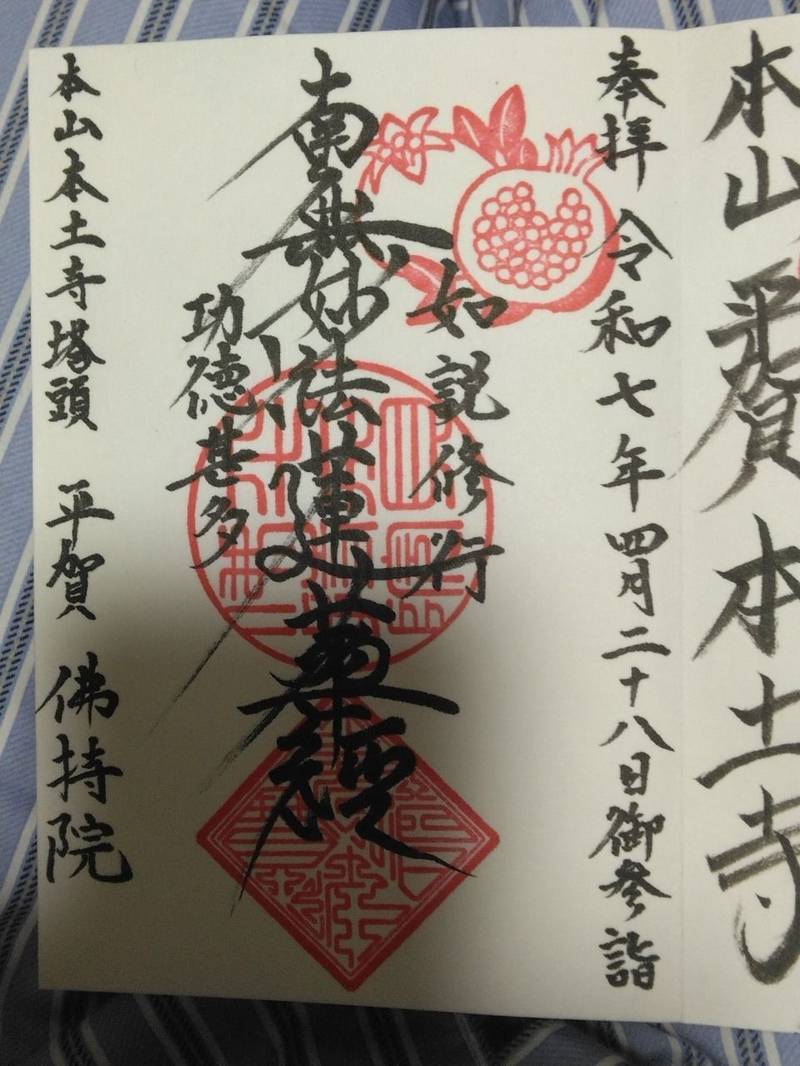 本山平賀本土寺
奉拝 令和七年四月二十八日御参詣
如説修行
南無妙法蓮華経
功徳甚多
本山本土寺塔頭 平賀 佛持院